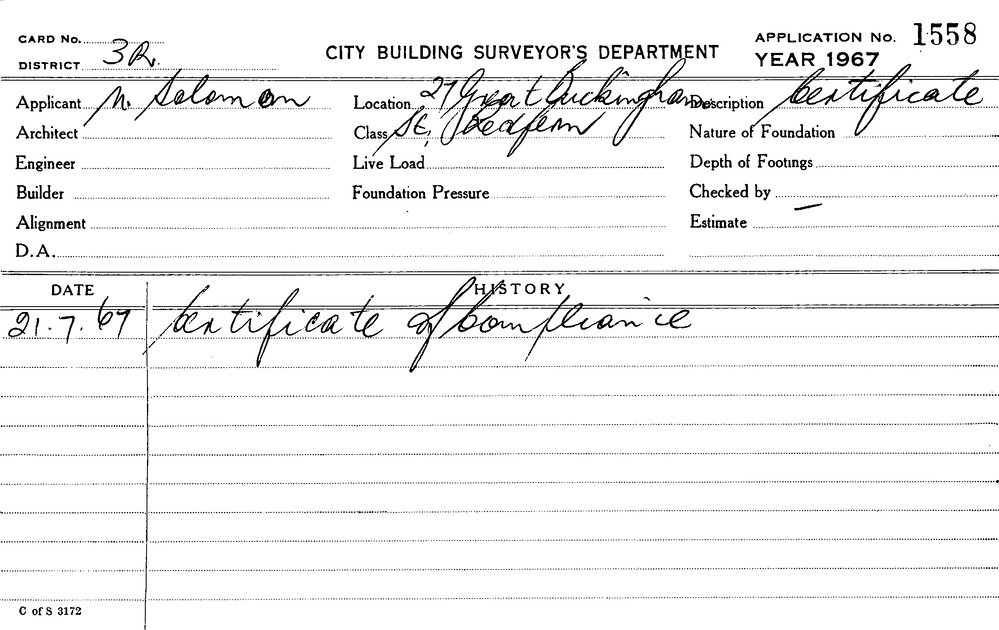 CARD No. APPLICATION No. 1558
DISTRICT 3R. CITY BUILDING SURVEYOR'S DEPARTMENT YEAR 1967
Applicant N. Solomon Location 27 Great Buckingham Description Certificate
Architect Class St, Redfern Nature of Foundation
Engineer Live Load Depth of Footings
Builder Foundation Pressure Checked by
Alignment Estimate —
D.A.
DATE HISTORY
21.7.67 Certificate of Compliance
C of S 3172